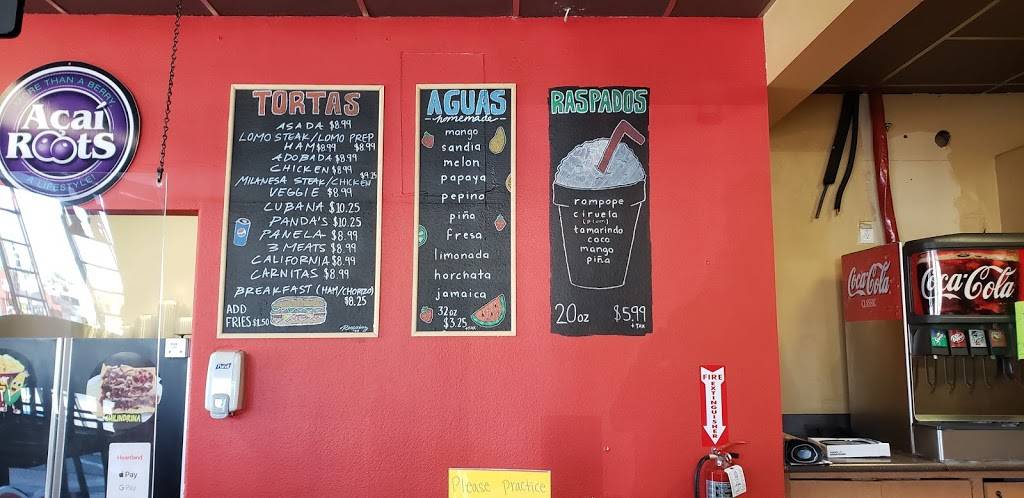 MORE THAN A BERRY
Açaí
ROOTS
A LIFESTYLE!
TORTAS
ASADA $8.99
LOMO STEAK/LOMO PREP
HAM $8.99 $8.99
ADOBADA $8.99
CHICKEN $8.99
MILANESA STEAK/CHICKEN $9.25
VEGGIE $8.99
CUBANA $10.25
PANDA'S $10.25
PANELA $8.99
3 MEATS $8.99
CALIFORNIA $8.99
CARNITAS $8.99
BREAKFAST (HAM/CHORIZO)
$8.25
ADD
FRIES $1.50
AGUAS
homemade
mango
sandia
melon
papaya
pepino
piña
fresa
limonada
horchata
jamaica
32oz
$3.25
RASPADOS
rompope
ciruela
(plum)
tamarindo
coco
mango
piña
20oz $5.99
+ TAX
Coca-Cola
CLASSIC
Coca-Cola
FIRE
EXTINGUISHER
Please practice
Heartland
Pay
G Pay